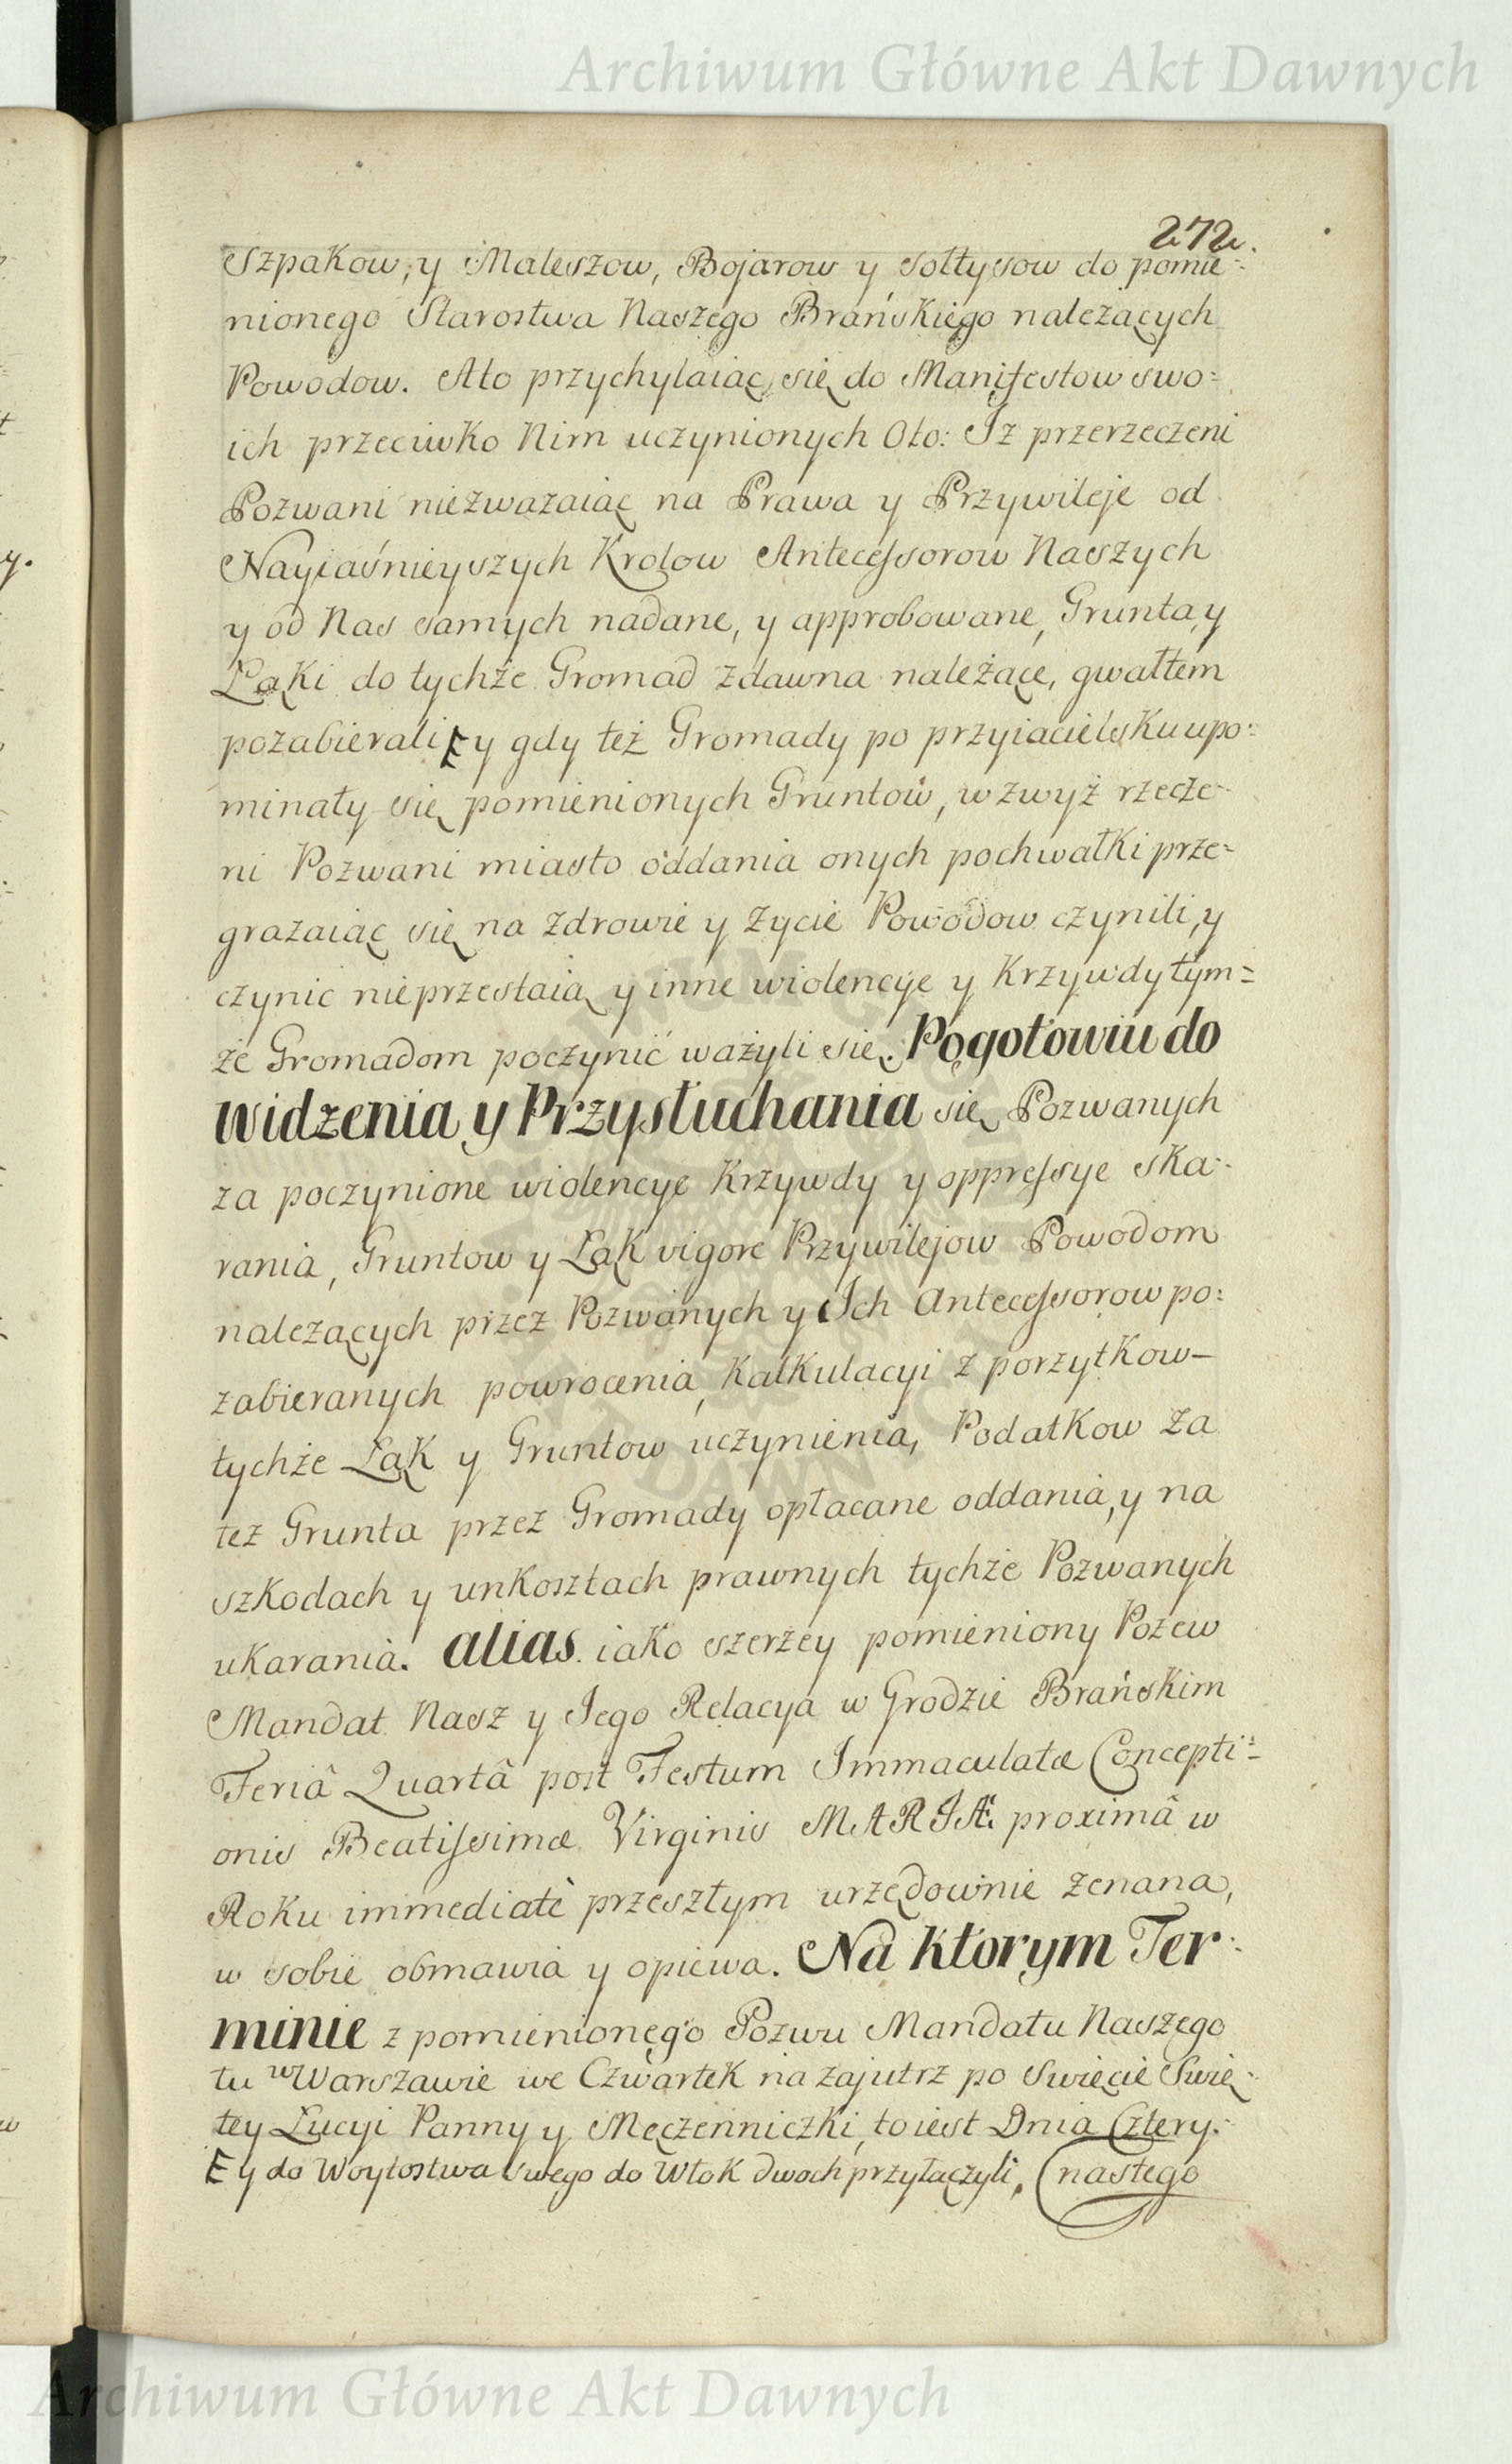 Archiwum Główne Akt Dawnych
272.
Szpakow, y Maleszow, Bojarow y sołtysow do pomie=
nionego Starostwa Naszego Brańskiego należących
Powodow. Ato przychylaiąc się do Manifestow swo=
ich przeciwko Nim uczynionych Oto: Iż przerzeczeni
Pozwani niezwazaiąc na Prawa y Przywileje od
Nayiaśnieyszych Krolow Antecessorow Naszych
y od Nas samych nadane, y approbowane, Grunta, y
Łąki do tychże Gromad zdawna należące, gwałtem
pozabierali E y gdy też Gromady po przyiacielsku upo=
minały się pomienionych Gruntow, wzwyż rzecze=
ni Pozwani miasto oddania onych pochwałki prze=
grażaiąc się na zdrowie y życie Powodow czynili, y
czynic nieprzestaią y inne wiolencye y Krzywdy tym=
że Gromadom poczynić ważyli się. Pogotowiu do
widzenia y Przysłuchania się Pozwanych
za poczynione wiolencye Krzywdy y oppressye ska=
rania, Gruntow y Łąk vigore Przywilejow Powodom
należących przez Pozwanych y Ich Antecessorow po=
zabieranych powrocenia, Kalkulacyi z porzytkow
tychże Łąk y Gruntow uczynienia, Podatkow za
też Grunta przez Gromady opłacane oddania, y na
szkodach y unkosztach prawnych tychże Pozwanych
ukarania. alias iako szerzey pomieniony Pozew
Mandat Nasz y Iego Relacya w Grodzie Brańskim
Feriâ Quartâ post Festum Immaculatæ Concepti=
onis Beatissimæ Virginis MARIÆ proximâ w
Roku immediatè przeszłym urzędownie zenana,
w sobie obmawia y opiewa. Na ktorym Ter=
minie z pomienionego Pozwu Mandatu Naszego
tu w Warszawie we Czwartek nazajutrz po Swięcie Swię=
tey Łucyi Panny y Męczenniczki, to iest Dnia Cztery=
E y do Woytostwa swego do Włok dwoch przyłączyli. nastego
Archiwum Główne Akt Dawnych